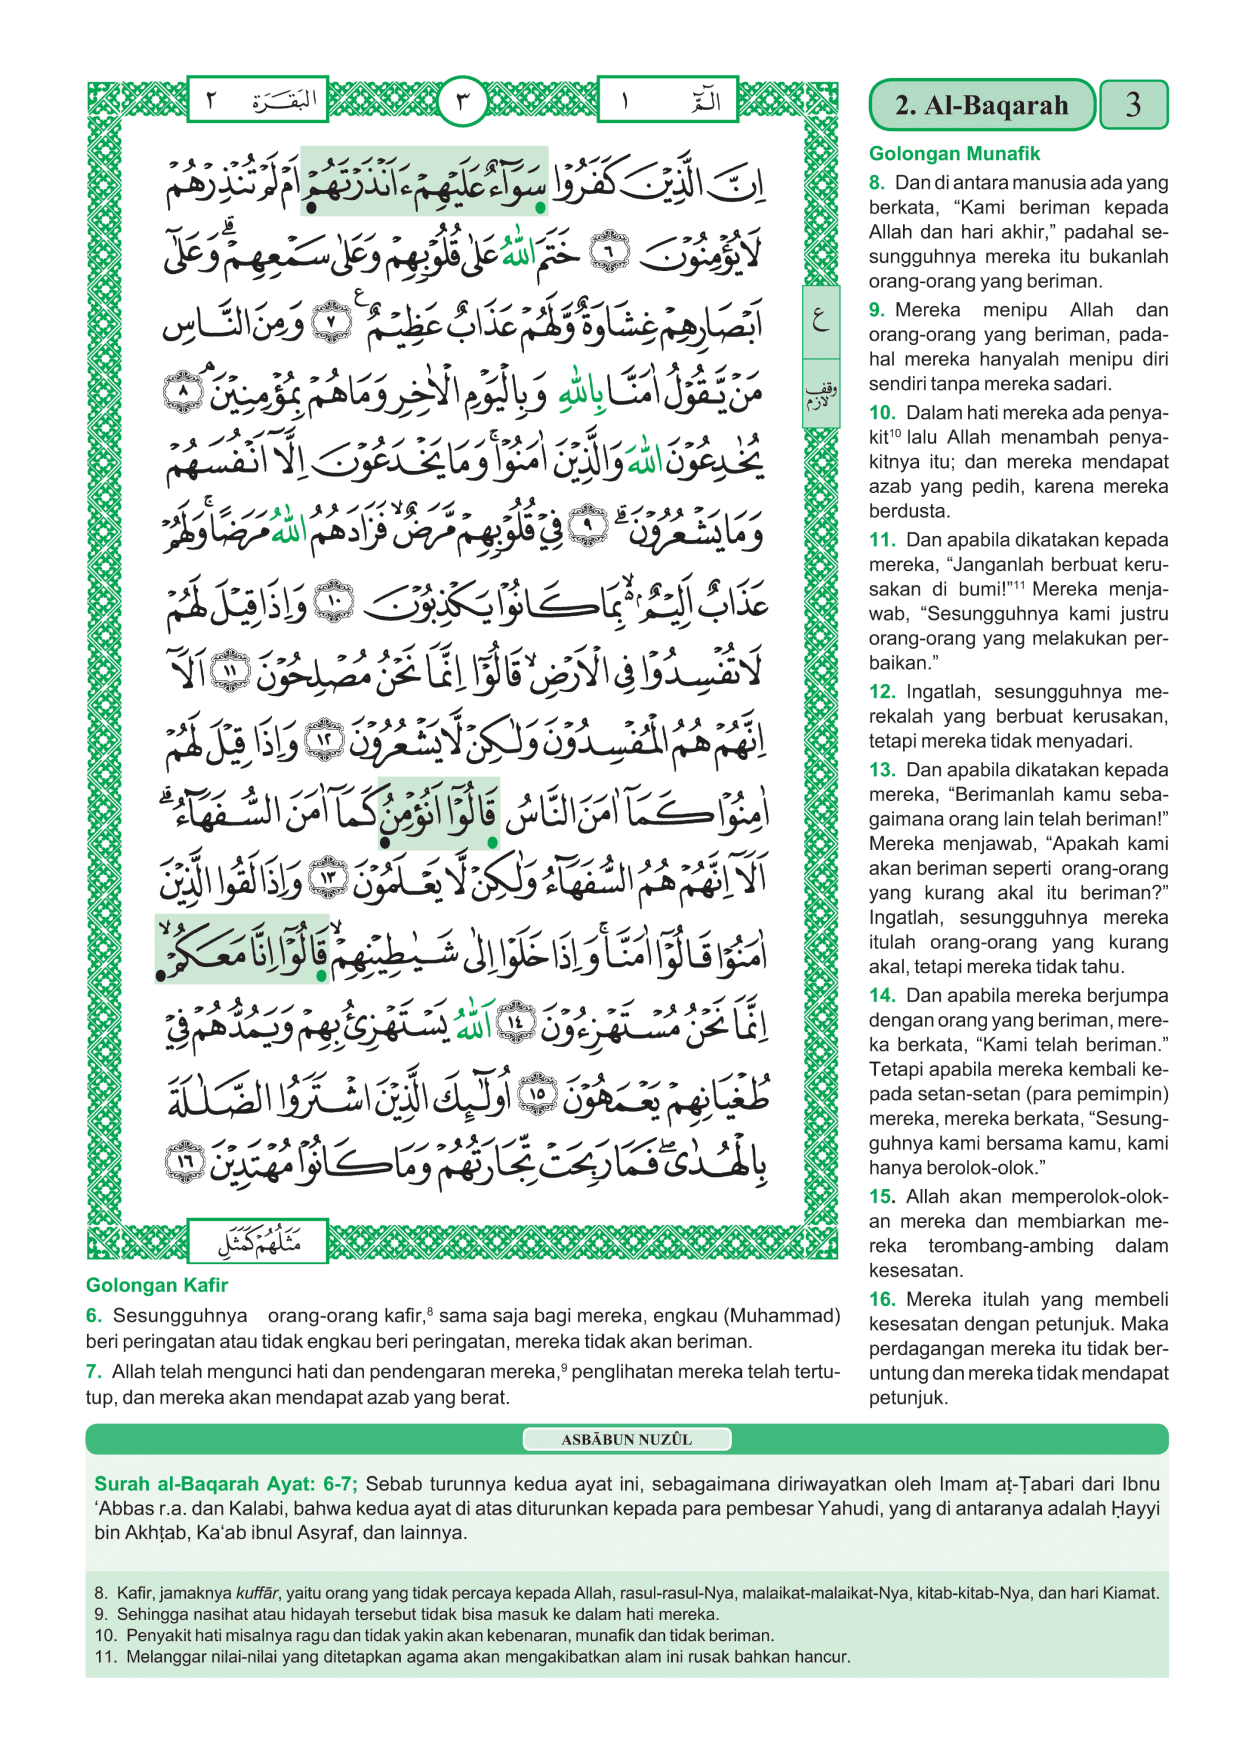 البَقَرَة ٢
٣
الٓمّٓ ١
2. Al-Baqarah
3
اِنَّ الَّذِيْنَ كَفَرُوْا سَوَاۤءٌ عَلَيْهِمْ ءَاَنْذَرْتَهُمْ اَمْ لَمْ تُنْذِرْهُمْ
لَا يُؤْمِنُوْنَ ٦ خَتَمَ اللّٰهُ عَلٰى قُلُوْبِهِمْ وَعَلٰى سَمْعِهِمْ ۗ وَعَلٰٓى
اَبْصَارِهِمْ غِشَاوَةٌ وَّلَهُمْ عَذَابٌ عَظِيْمٌ ٧ وَمِنَ النَّاسِ
مَنْ يَّقُوْلُ اٰمَنَّا بِاللّٰهِ وَبِالْيَوْمِ الْاٰخِرِ وَمَا هُمْ بِمُؤْمِنِيْنَۘ ٨
يُخٰدِعُوْنَ اللّٰهَ وَالَّذِيْنَ اٰمَنُوْا ۚ وَمَا يَخْدَعُوْنَ اِلَّآ اَنْفُسَهُمْ
وَمَا يَشْعُرُوْنَ ۗ ٩ فِيْ قُلُوْبِهِمْ مَّرَضٌۙ فَزَادَهُمُ اللّٰهُ مَرَضًاۚ وَلَهُمْ
عَذَابٌ اَلِيْمٌ ۢ ەۙ بِمَا كَانُوْا يَكْذِبُوْنَ ١٠ وَاِذَا قِيْلَ لَهُمْ
لَا تُفْسِدُوْا فِى الْاَرْضِۙ قَالُوْٓا اِنَّمَا نَحْنُ مُصْلِحُوْنَ ١١ اَلَآ
اِنَّهُمْ هُمُ الْمُفْسِدُوْنَ وَلٰكِنْ لَّا يَشْعُرُوْنَ ١٢ وَاِذَا قِيْلَ لَهُمْ
اٰمِنُوْا كَمَآ اٰمَنَ النَّاسُ قَالُوْٓا اَنُؤْمِنُ كَمَآ اٰمَنَ السُّفَهَاۤءُ ۗ
اَلَآ اِنَّهُمْ هُمُ السُّفَهَاۤءُ وَلٰكِنْ لَّا يَعْلَمُوْنَ ١٣ وَاِذَا لَقُوا الَّذِيْنَ
اٰمَنُوْا قَالُوْٓا اٰمَنَّاۚ وَاِذَا خَلَوْا اِلٰى شَيٰطِيْنِهِمْۙ قَالُوْٓا اِنَّا مَعَكُمْۙ
اِنَّمَا نَحْنُ مُسْتَهْزِءُوْنَ ١٤ اَللّٰهُ يَسْتَهْزِئُ بِهِمْ وَيَمُدُّهُمْ فِيْ
طُغْيَانِهِمْ يَعْمَهُوْنَ ١٥ اُولٰۤىِٕكَ الَّذِيْنَ اشْتَرَوُا الضَّلٰلَةَ
بِالْهُدٰىۖ فَمَا رَبِحَتْ تِّجَارَتُهُمْ وَمَا كَانُوْا مُهْتَدِيْنَ ١٦
مَثَلُهُمْ كَمَثَلِ
ع
وقف
لازم
Golongan Kafir
6. Sesungguhnya orang-orang kafir,⁸ sama saja bagi mereka, engkau (Muhammad)
beri peringatan atau tidak engkau beri peringatan, mereka tidak akan beriman.
7. Allah telah mengunci hati dan pendengaran mereka,⁹ penglihatan mereka telah tertu-
tup, dan mereka akan mendapat azab yang berat.
Golongan Munafik
8. Dan di antara manusia ada yang
berkata, “Kami beriman kepada
Allah dan hari akhir,” padahal se-
sungguhnya mereka itu bukanlah
orang-orang yang beriman.
9. Mereka menipu Allah dan
orang-orang yang beriman, pada-
hal mereka hanyalah menipu diri
sendiri tanpa mereka sadari.
10. Dalam hati mereka ada penya-
kit¹⁰ lalu Allah menambah penya-
kitnya itu; dan mereka mendapat
azab yang pedih, karena mereka
berdusta.
11. Dan apabila dikatakan kepada
mereka, “Janganlah berbuat keru-
sakan di bumi!”¹¹ Mereka menja-
wab, “Sesungguhnya kami justru
orang-orang yang melakukan per-
baikan.”
12. Ingatlah, sesungguhnya me-
rekalah yang berbuat kerusakan,
tetapi mereka tidak menyadari.
13. Dan apabila dikatakan kepada
mereka, “Berimanlah kamu seba-
gaimana orang lain telah beriman!”
Mereka menjawab, “Apakah kami
akan beriman seperti orang-orang
yang kurang akal itu beriman?”
Ingatlah, sesungguhnya mereka
itulah orang-orang yang kurang
akal, tetapi mereka tidak tahu.
14. Dan apabila mereka berjumpa
dengan orang yang beriman, mere-
ka berkata, “Kami telah beriman.”
Tetapi apabila mereka kembali ke-
pada setan-setan (para pemimpin)
mereka, mereka berkata, “Sesung-
guhnya kami bersama kamu, kami
hanya berolok-olok.”
15. Allah akan memperolok-olok-
an mereka dan membiarkan me-
reka terombang-ambing dalam
kesesatan.
16. Mereka itulah yang membeli
kesesatan dengan petunjuk. Maka
perdagangan mereka itu tidak ber-
untung dan mereka tidak mendapat
petunjuk.
ASBĀBUN NUZÛL
Surah al-Baqarah Ayat: 6-7; Sebab turunnya kedua ayat ini, sebagaimana diriwayatkan oleh Imam aṭ-Ṭabari dari Ibnu
‘Abbas r.a. dan Kalabi, bahwa kedua ayat di atas diturunkan kepada para pembesar Yahudi, yang di antaranya adalah Ḥayyi
bin Akhṭab, Ka‘ab ibnul Asyraf, dan lainnya.
8. Kafir, jamaknya kuffār, yaitu orang yang tidak percaya kepada Allah, rasul-rasul-Nya, malaikat-malaikat-Nya, kitab-kitab-Nya, dan hari Kiamat.
9. Sehingga nasihat atau hidayah tersebut tidak bisa masuk ke dalam hati mereka.
10. Penyakit hati misalnya ragu dan tidak yakin akan kebenaran, munafik dan tidak beriman.
11. Melanggar nilai-nilai yang ditetapkan agama akan mengakibatkan alam ini rusak bahkan hancur.